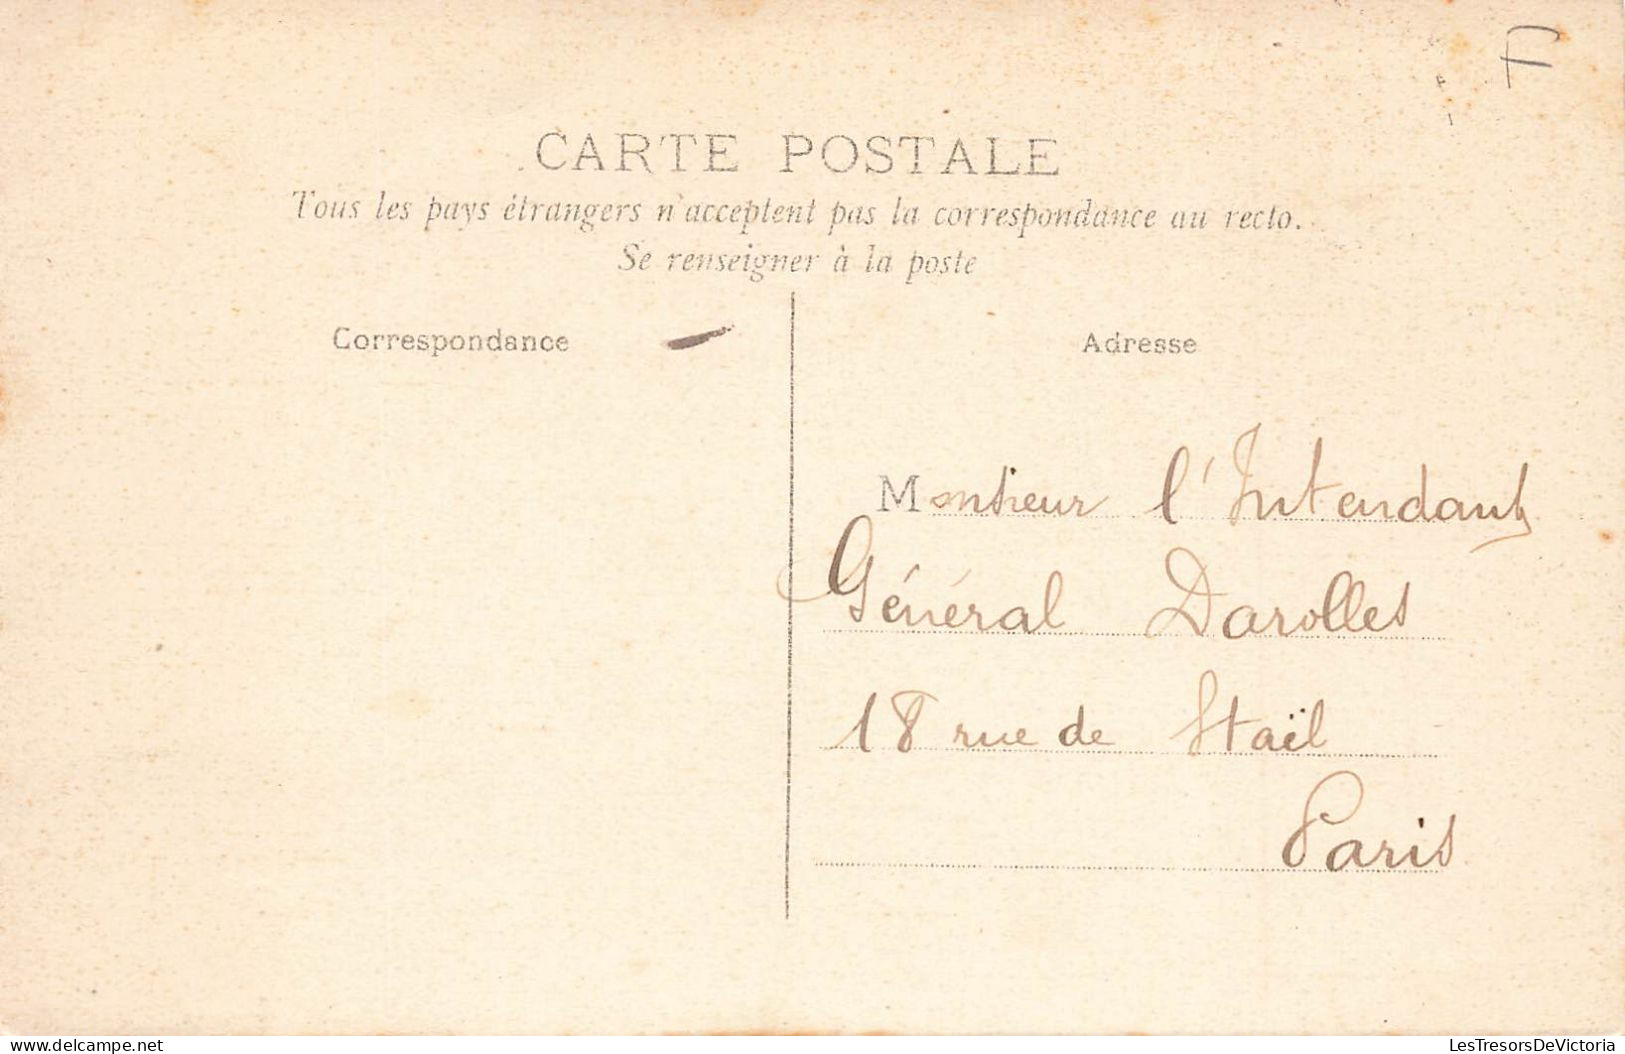 F
CARTE POSTALE
Tous les pays étrangers n'acceptent pas la correspondance au recto.
Se renseigner à la poste
Correspondance
Adresse
Monsieur l'Intendant
Général Darolles
18 rue de Staël
Paris
LesTresorsDeVictoria
delcampe.net